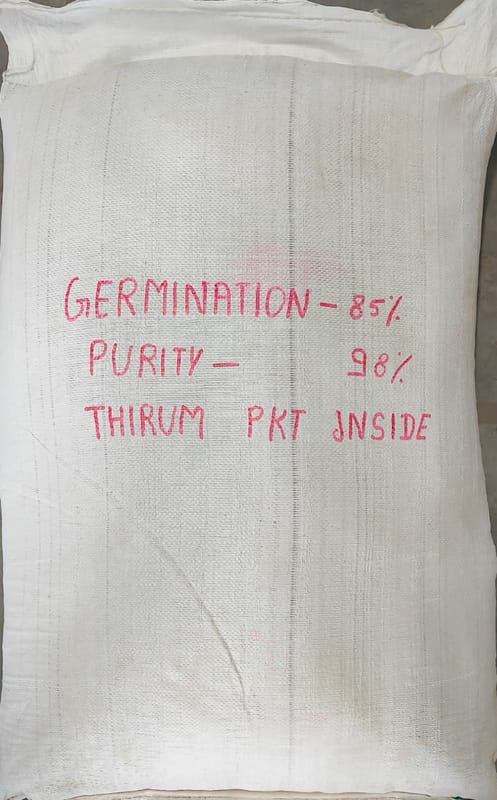 GERMINATION - 85%
PURITY - 98%
THIRUM PKT INSIDE